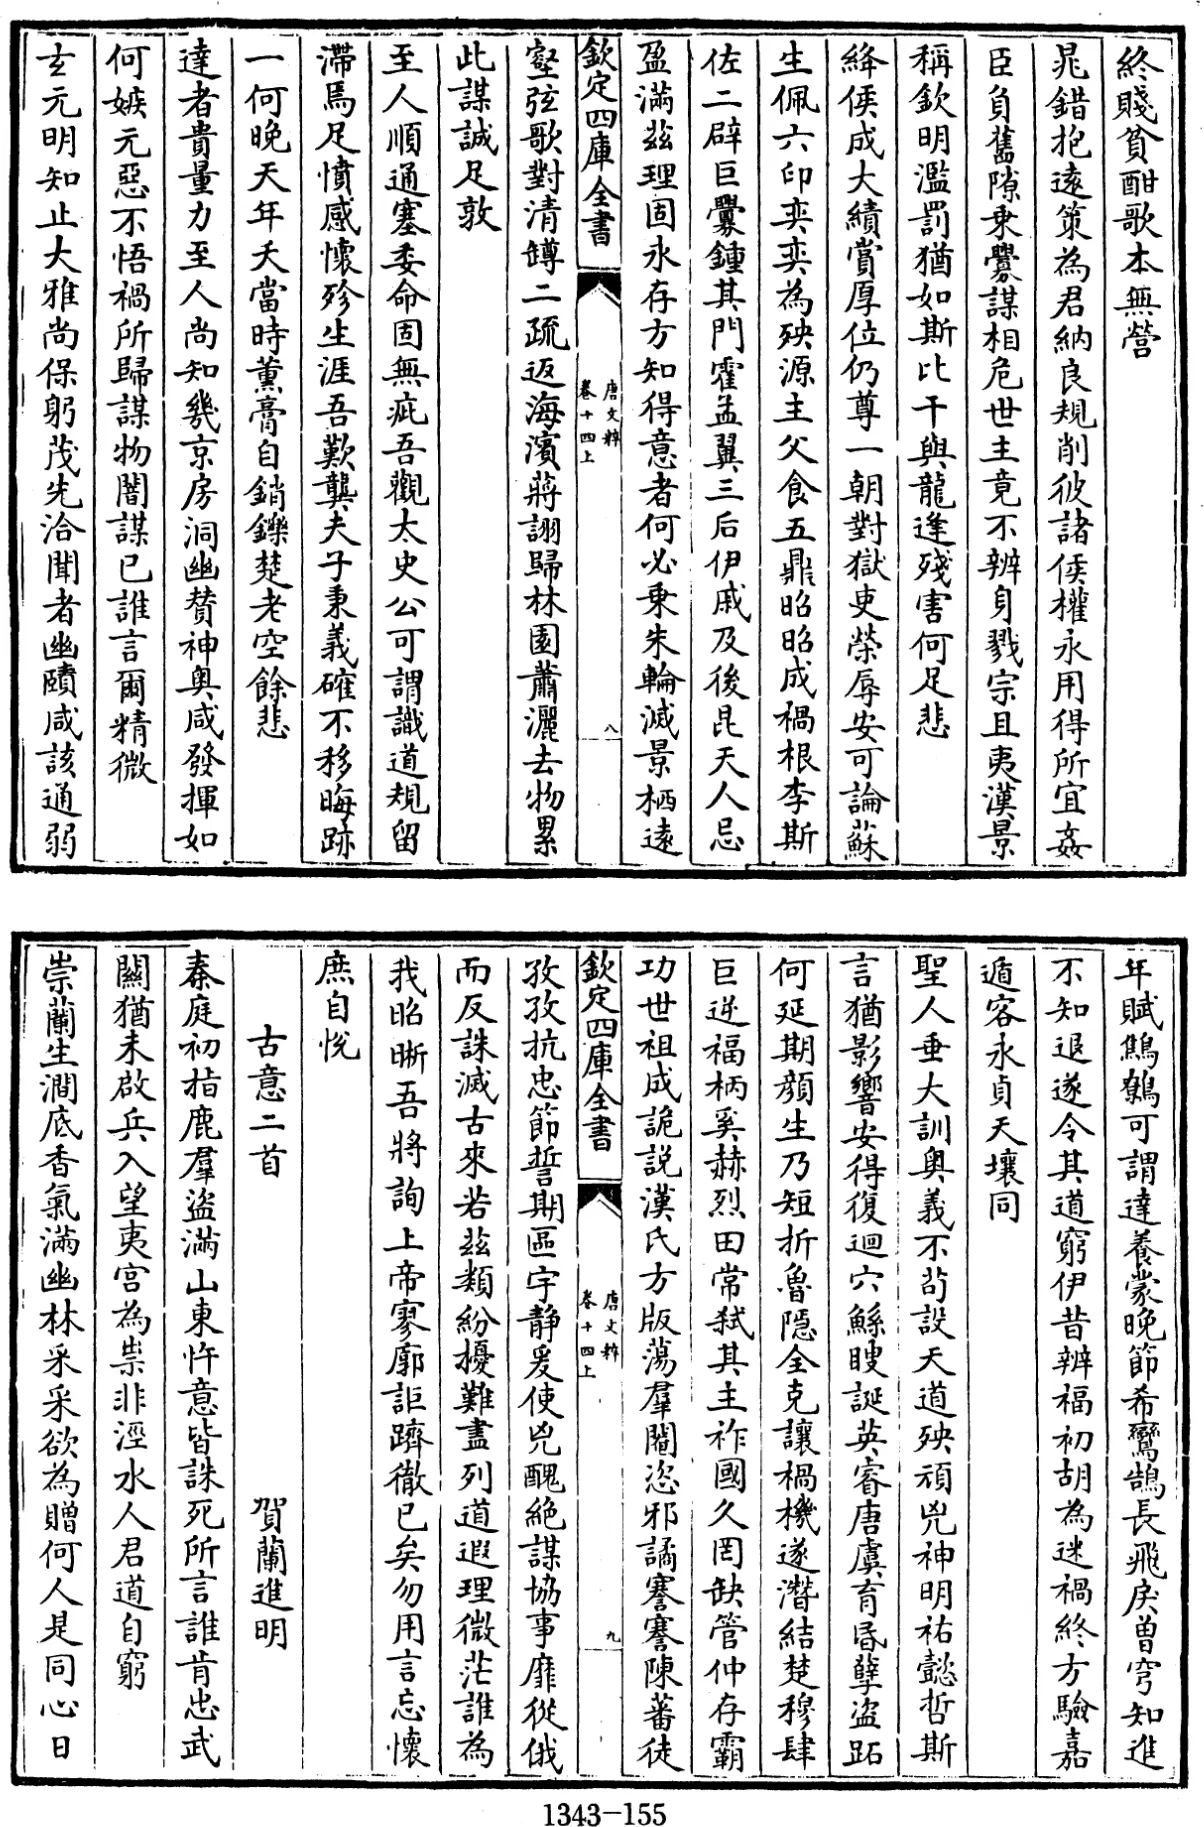 終賤貧酣歌本無營
晁錯抱遠策為君納良規削彼諸侯權永用得所宜姦
臣負舊隙乘釁謀相危世主竟不辨身戮宗且夷漢景
稱欽明濫罰猶如斯比干與龍逢殘害何足悲
絳侯成大績賞厚位仍尊一朝對獄吏榮辱安可論蘇
生佩六印奕奕為殃源主父食五鼎昭昭成禍根李斯
佐二辟巨釁鍾其門霍孟翼三后伊戚及後昆天人忌
盈滿兹理固永存方知得意者何必乘朱輪滅景栖遠
欽定四庫全書
唐文粹
卷十四上
八
壑弦歌對清罇二疏返海濱蔣詡歸林園蕭灑去物累
此謀誠足敦
至人順通塞委命固無疵吾觀太史公可謂識道規留
滯焉足憤感懷殄生涯吾歎龔夫子秉義確不移晦跡
一何晚天年夭當時薰膏自銷鑠楚老空餘悲
達者貴量力至人尚知幾京房洞幽贊神奥咸發揮如
何嫉元惡不悟禍所歸謀物闇謀已誰言爾精微
玄元明知止大雅尚保躬茂先洽聞者幽賾咸該通弱
年賦鷦鷯可謂達養蒙晚節希鸞鵠長飛戾曾穹知進
不知退遂令其道窮伊昔辨福初胡為迷禍終方驗嘉
遁客永貞天壤同
聖人垂大訓奥義不茍設天道殃頑兇神明祐懿哲斯
言猶影響安得復迴穴鯀瞍誕英睿唐虞育昏孽盜跖
何延期顔生乃短折魯隱全克讓禍機遂潛結楚穆肆
巨逆福柄奚赫烈田常弑其主祚國久罔缺管仲存霸
功世祖成詭説漢氏方版蕩羣閹恣邪譎謇謇陳蕃徒
欽定四庫全書
唐文粹
卷十四上
九
孜孜抗忠節誓期區宇静爰使兇醜絶謀協事靡從俄
而反誅滅古來若兹類紛擾難盡列道遐理微茫誰為
我昭晰吾將詢上帝寥廓詎躋徹已矣勿用言忘懷
庶自悦
古意二首　賀蘭進明
秦庭初指鹿羣盜滿山東忤意皆誅死所言誰肯忠武
關猶未啟兵入望夷宫為祟非涇水人君道自窮
崇蘭生澗底香氣滿幽林采采欲為贈何人是同心日
1343-155